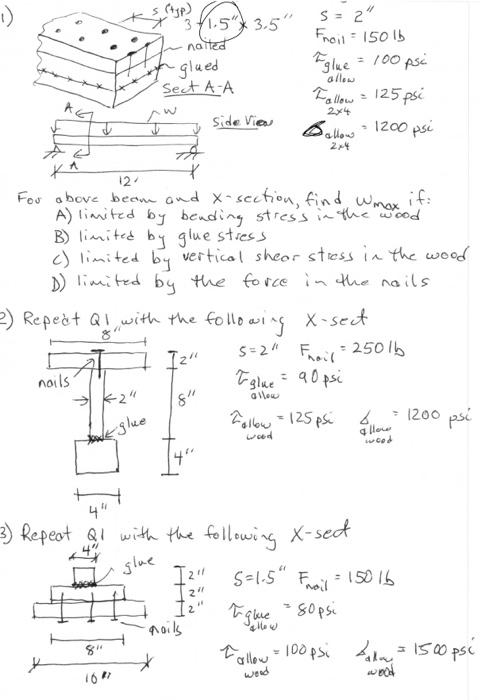 1)
s (typ)
3 - 1.5" x 3.5"
nailed
glued
Sect A-A
A
W
Side View
A
12'
S = 2"
Fnail = 150 lb
τglue allow = 100 psi
τallow 2x4 = 125 psi
σallow 2x4 = 1200 psi
For above beam and x-section, find wmax if:
A) limited by bending stress in the wood
B) limited by glue stress
C) limited by vertical shear stress in the wood
D) limited by the force in the nails
2) Repeat Q1 with the following X-sect
8"
nails
2"
2"
8"
glue
4"
4"
S=2" Fnail = 250 lb
τglue allow = 90 psi
τallow wood = 125 psi σallow wood = 1200 psi
3) Repeat Q1 with the following X-sect
4"
glue
2"
2"
2"
nails
8"
10"
S=1.5" Fnail = 150 lb
τglue allow = 80 psi
τallow wood = 100 psi σallow wood = 1500 psi